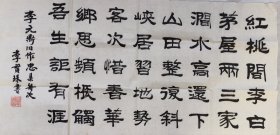 紅桃間李白
茅屋兩三家
澗水高還下
山田整復斜
峽居習幽僻
客次惜春華
鄉思頻棖觸
吾生詎有涯
李元 旧作
李 林書